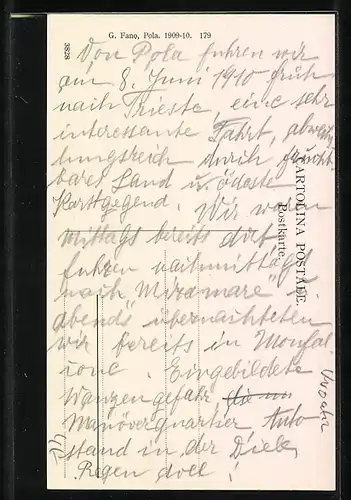 G. Fano, Pola. 1909-10. 179
3828
Von Pola fuhren wir
am 8. Juni 1910 früh
nach Trieste, eine sehr
interessante Fahrt, abwechs
lungsreich durch frucht
bares Land u. ödeste
Karstgegend. Wir waren
Mittags bereits dort
fuhren nachmittags
nach Miramare" u.
abends übernachteten
wir bereits in Monfal
cone. Eingebildete
Wanzengefahr
Manöverquartier Auto
stand in der Diele,
Regen doll!
CARTOLINA POSTALE.
Postkarte.